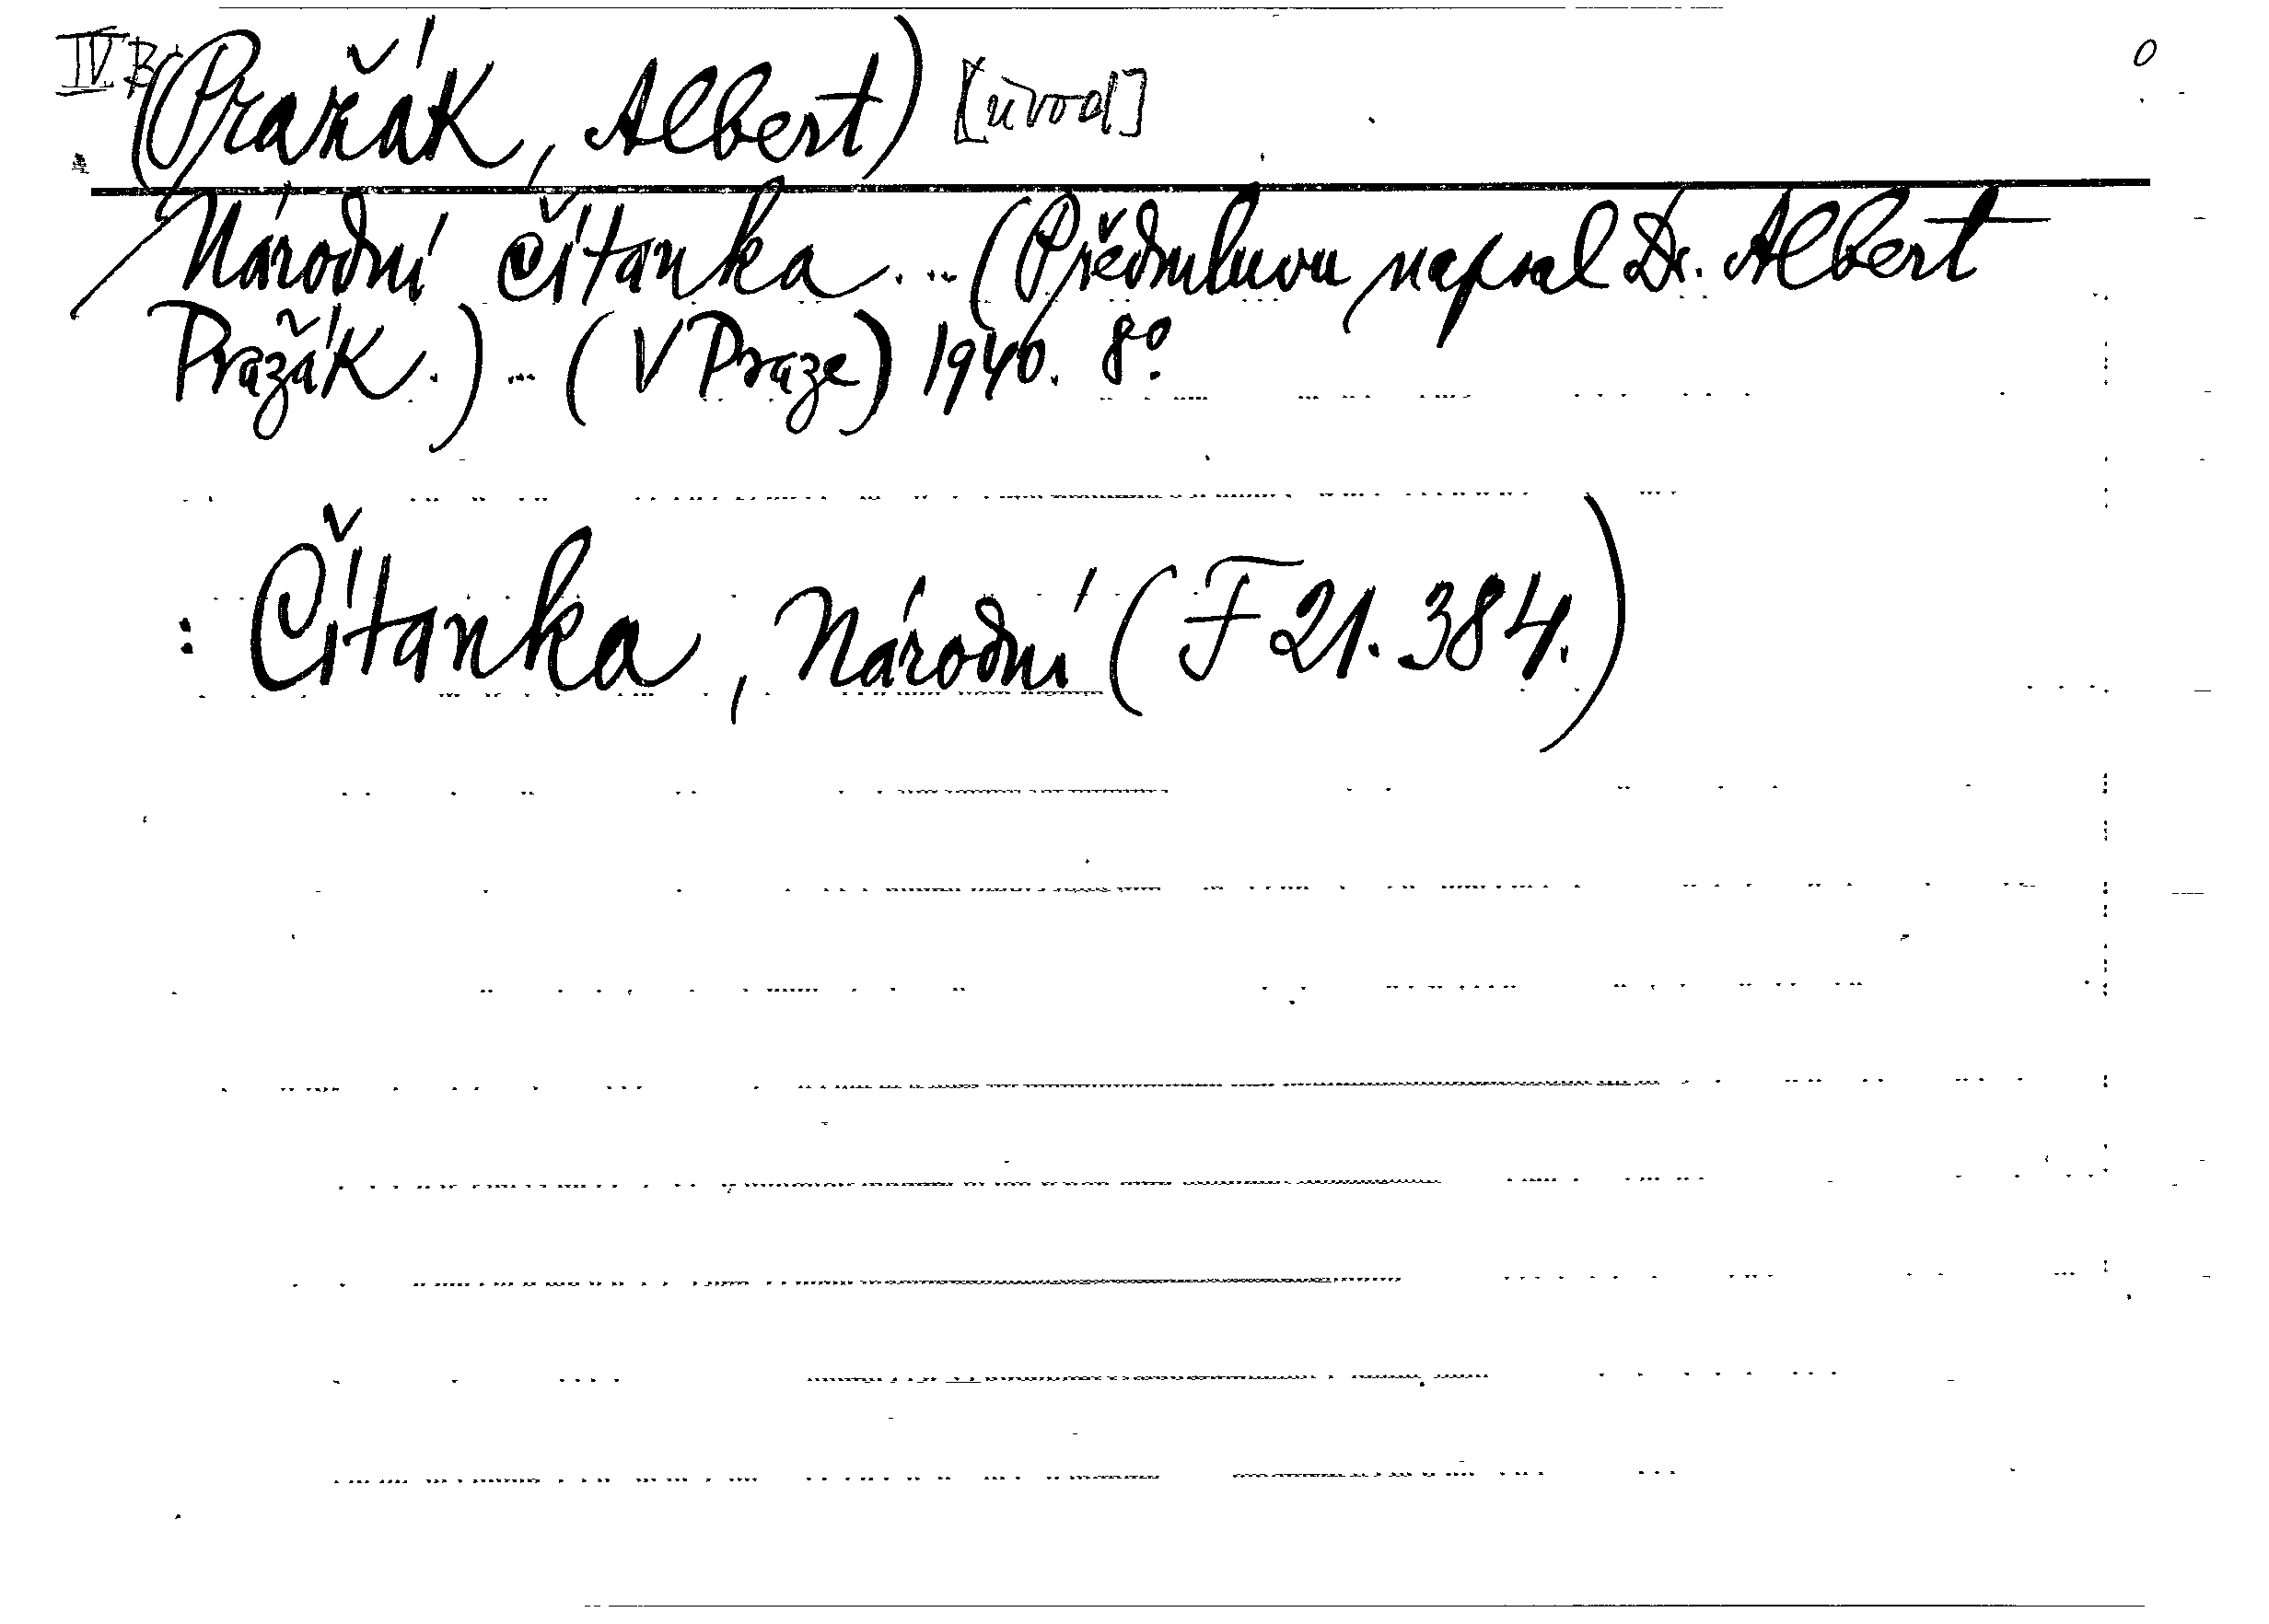 IV B (Pražák, Albert) [úvod] 0
Národní čítanka ... (Předmluvu napsal Dr. Albert
Pražák.) ... (V Praze) 1940. 8°.
: Čítanka, Národní (F 21.384.)